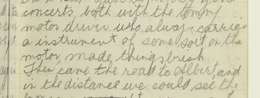 concerts, both with the
motor driver who always carries
a instrument of some sort on the
motor, made things brisk.
Then came the road to Albert, and
in the distance we could see the